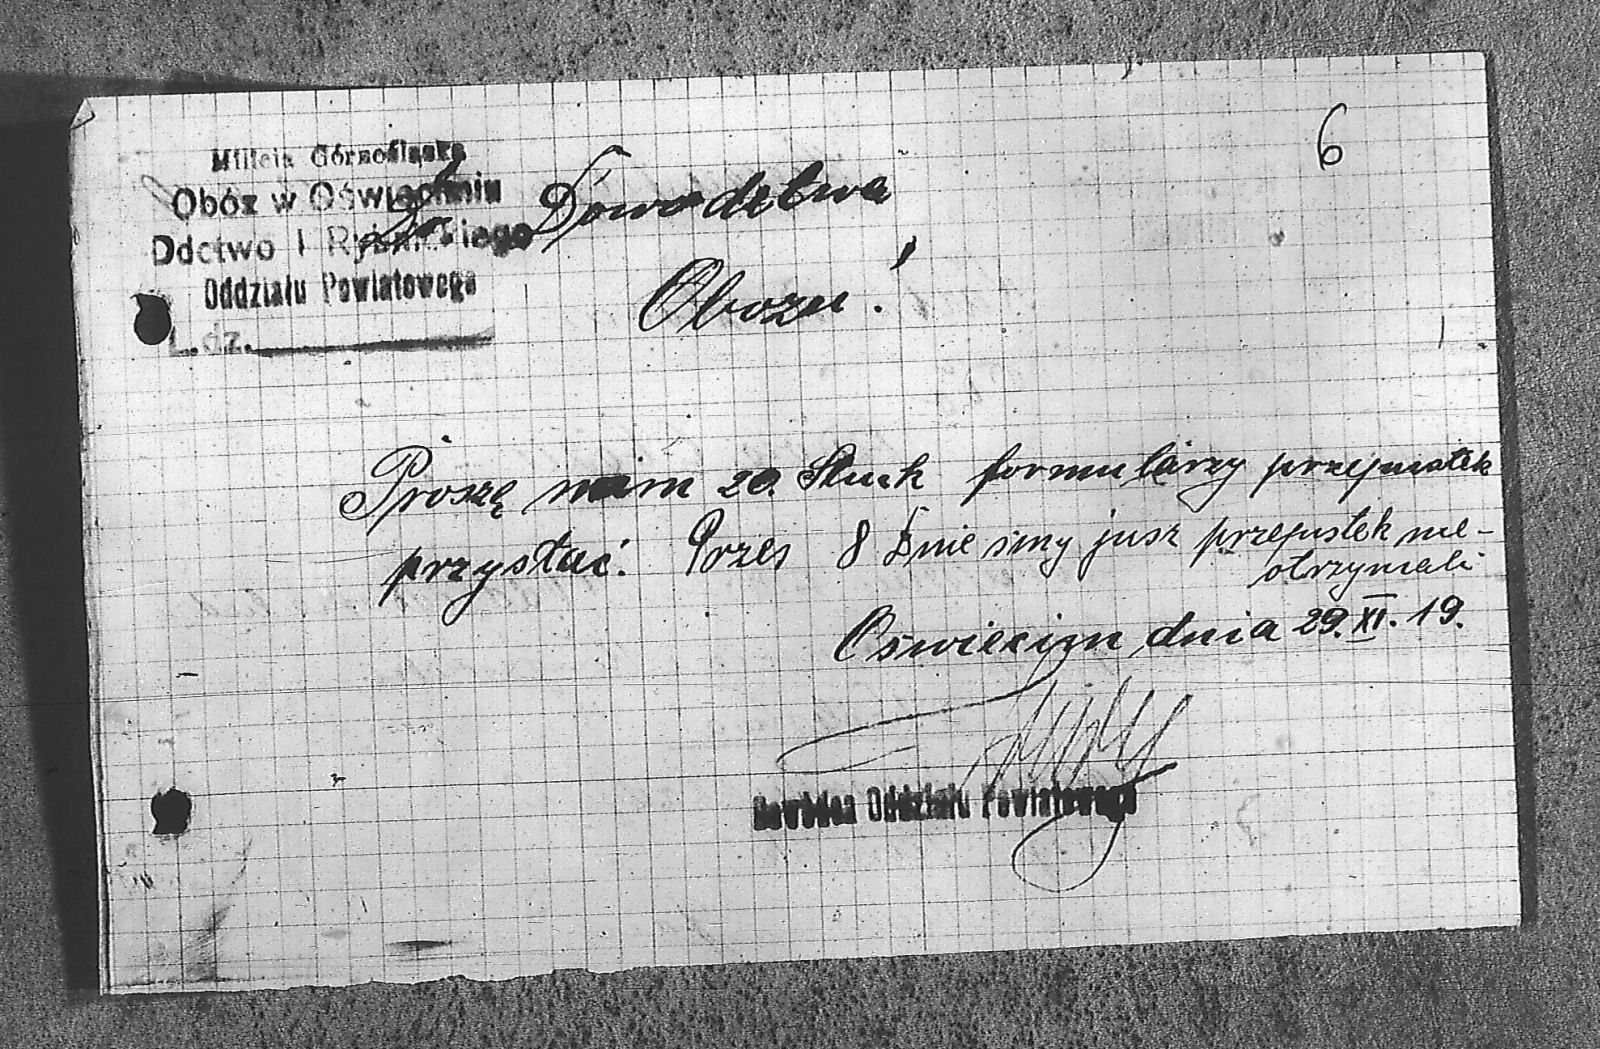 6
Milicja Górnośląska
Obóz w Oświęcimiu
Ddctwo I Rybnickiego
Oddziału Powiatowego
L. dz.
Do Dowodctwa
Obozu!
Proszę nam 20. Stuck formularzy przepustek
przysłać. Przes 8 Dnie smy jusz przepustek nie-
otrzymali
Oswiecim dnia 29. XI. 19.
Dowódca Oddziału Powiatowego